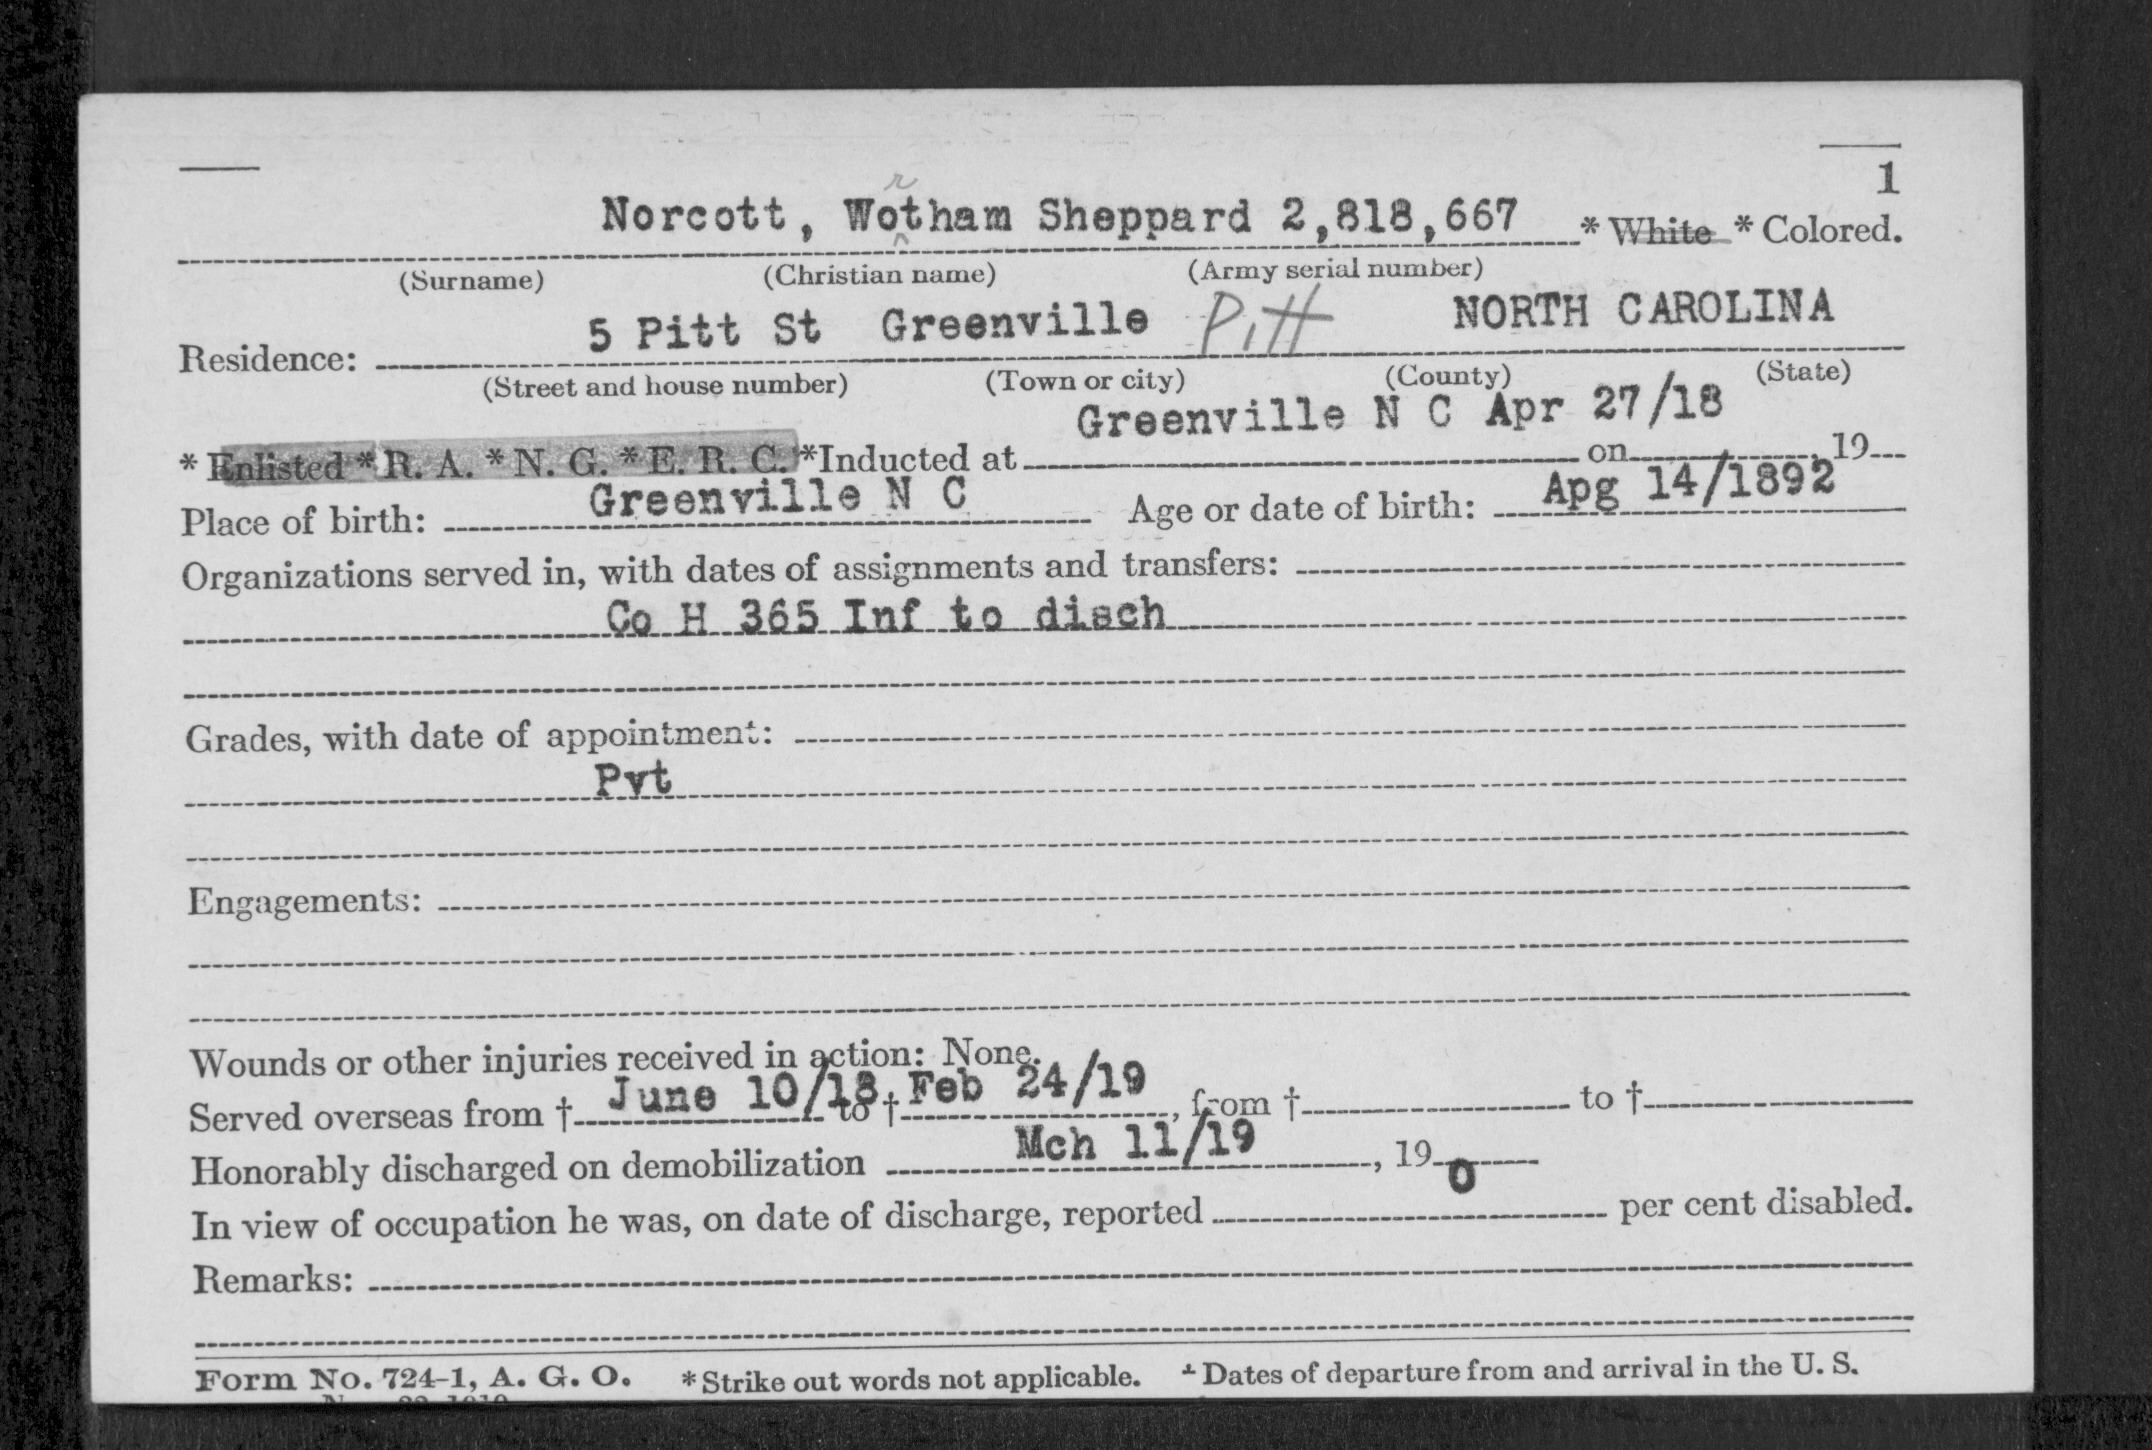 1
Norcott, Wortham Sheppard 2,818,667 * White * Colored.
(Surname) (Christian name) (Army serial number)
Residence: 5 Pitt St Greenville Pitt NORTH CAROLINA
(Street and house number) (Town or city) (County) (State)
* Enlisted * R. A. * N. G. * E. R. C. *Inducted at Greenville N C Apr 27/18 on , 19
Place of birth: Greenville N C Age or date of birth: Apg 14/1892
Organizations served in, with dates of assignments and transfers:
Co H 365 Inf to disch
Grades, with date of appointment:
Pvt
Engagements:
Wounds or other injuries received in action: None.
Served overseas from † June 10/18 to † Feb 24/19, from † to †
Honorably discharged on demobilization Mch 11/19, 19
In view of occupation he was, on date of discharge, reported 0 per cent disabled.
Remarks:
Form No. 724-1, A. G. O. * Strike out words not applicable. † Dates of departure from and arrival in the U. S.